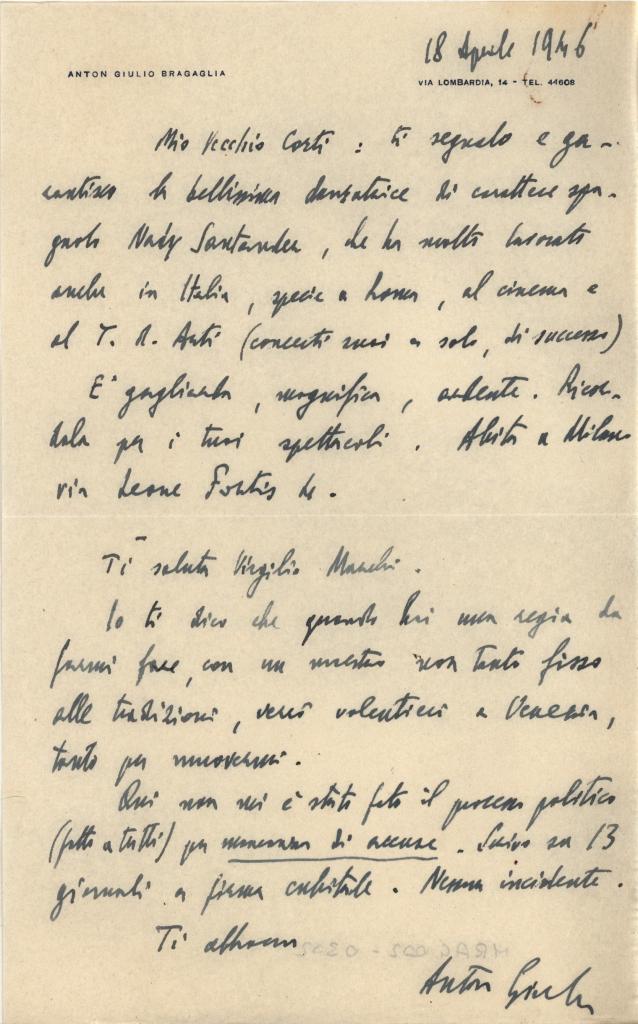 18 Aprile 1946
ANTON GIULIO BRAGAGLIA
VIA LOMBARDIA, 14 - TEL. 44608
Mio vecchio Corti : ti segnalo e ga-
rantisco la bellissima danzatrice di carattere spa-
gnolo Nady Santander, che ha molto lavorato
anche in Italia, specie a Roma, al cinema e
al T. d. Arti (concerti suoi a solo, di successo)
E' gagliarda, magnifica, ardente. Ricor-
dala per i tuoi spettacoli. Abita a Milano
via Leone Fortis
Ti saluta Virgilio Marchi.
Io ti dico che quando hai una regia da
farmi fare, con un maestro non tanto fisso
alle tradizioni, verrò volentieri a Venezia,
tanto per muovermi.
Qui non mi è stato fatto il processo politico
(fatto a tutti) per mancanza di accuse. Scrivo su 13
giornali a firma cubitale. Nessun incidente.
Ti abbraccio
Anton Giulio
MRAC 002 - 0302